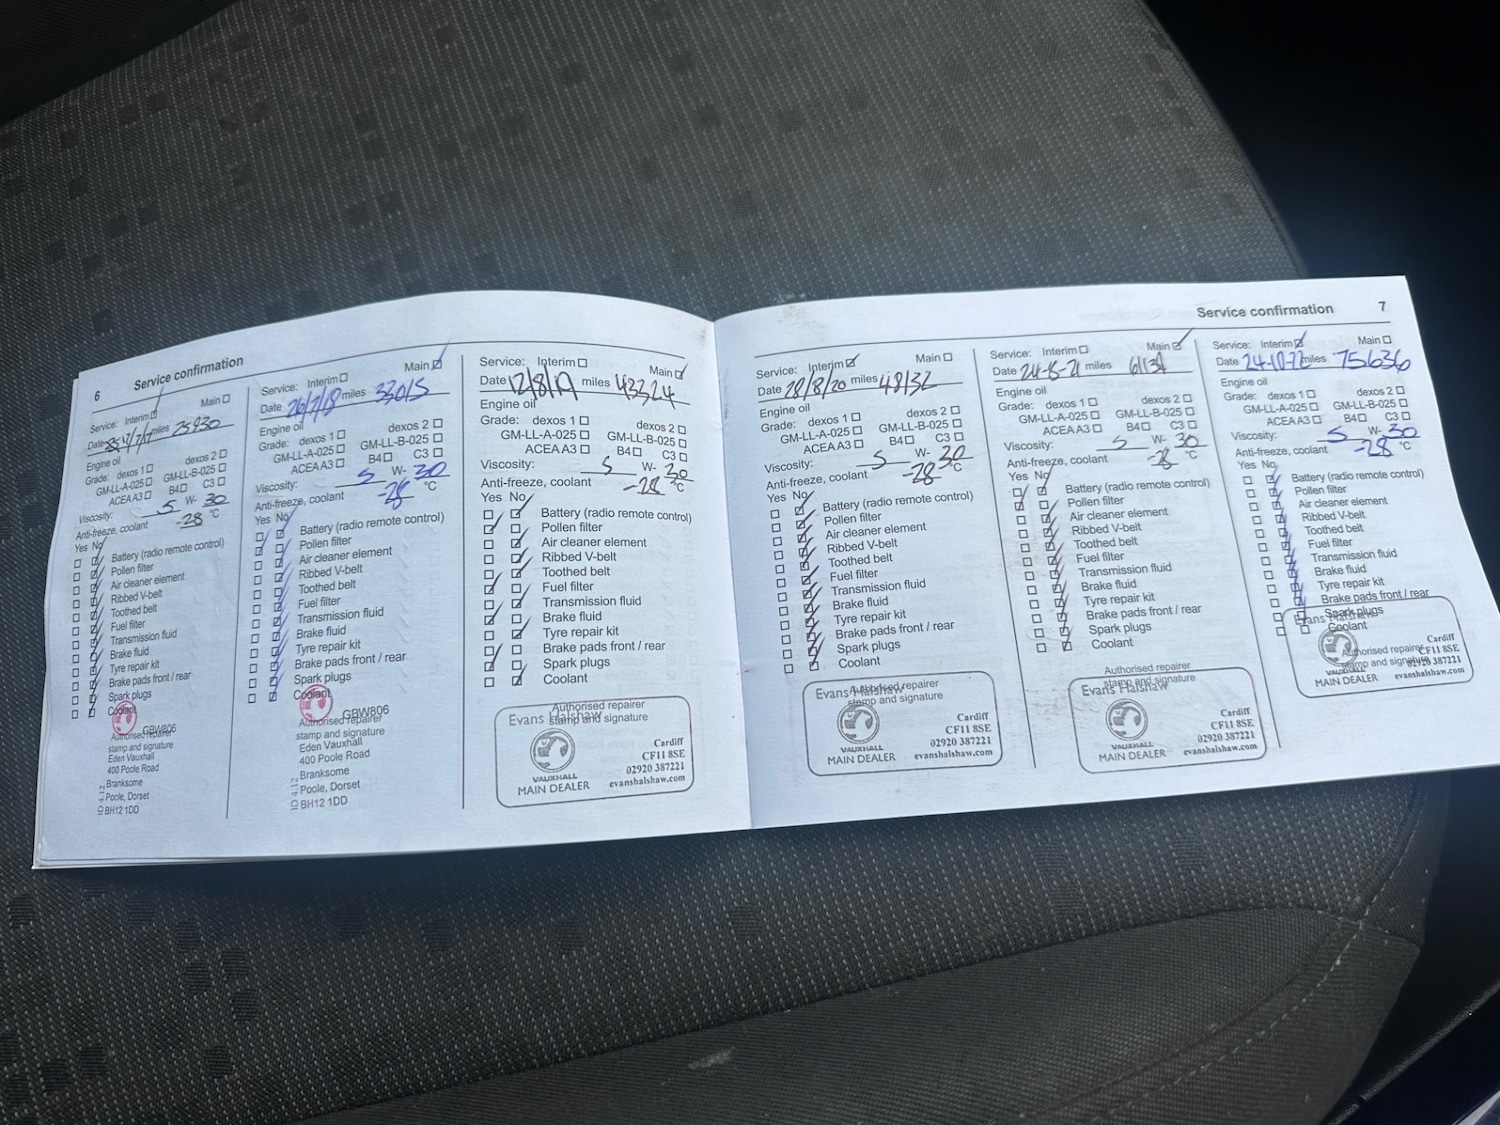 6
Service confirmation
Service: Interim Main
Date 17/7/17 miles 25930
Engine oil
Grade: dexos 1 dexos 2
GM-LL-A-025 GM-LL-B-025
ACEA A3 B4 C3
Viscosity: 5 W- 30
Anti-freeze, coolant -28 °C
Yes No
Battery (radio remote control)
Pollen filter
Air cleaner element
Ribbed V-belt
Toothed belt
Fuel filter
Transmission fluid
Brake fluid
Tyre repair kit
Brake pads front / rear
Spark plugs
Coolant
GBW806
Authorised repairer
stamp and signature
Eden Vauxhall
400 Poole Road
Branksome
Poole, Dorset
BH12 1DD
Service: Interim Main
Date 26/7/18 miles 33015
Engine oil
Grade: dexos 1 dexos 2
GM-LL-A-025 GM-LL-B-025
ACEA A3 B4 C3
Viscosity: 5 W- 30
Anti-freeze, coolant -28 °C
Yes No
Battery (radio remote control)
Pollen filter
Air cleaner element
Ribbed V-belt
Toothed belt
Fuel filter
Transmission fluid
Brake fluid
Tyre repair kit
Brake pads front / rear
Spark plugs
Coolant
GBW806
Authorised repairer
stamp and signature
Eden Vauxhall
400 Poole Road
Branksome
Poole, Dorset
BH12 1DD
Service: Interim Main
Date 12/8/19 miles 43324
Engine oil
Grade: dexos 1 dexos 2
GM-LL-A-025 GM-LL-B-025
ACEA A3 B4 C3
Viscosity: 5 W- 30
Anti-freeze, coolant -28 °C
Yes No
Battery (radio remote control)
Pollen filter
Air cleaner element
Ribbed V-belt
Toothed belt
Fuel filter
Transmission fluid
Brake fluid
Tyre repair kit
Brake pads front / rear
Spark plugs
Coolant
Authorised repairer
stamp and signature
Evans Halshaw
Cardiff
CF11 8SE
02920 387221
VAUXHALL
MAIN DEALER evanshalshaw.com
Service confirmation 7
Service: Interim Main
Date 28/8/20 miles 48132
Engine oil
Grade: dexos 1 dexos 2
GM-LL-A-025 GM-LL-B-025
ACEA A3 B4 C3
Viscosity: 5 W- 30
Anti-freeze, coolant -28 °C
Yes No
Battery (radio remote control)
Pollen filter
Air cleaner element
Ribbed V-belt
Toothed belt
Fuel filter
Transmission fluid
Brake fluid
Tyre repair kit
Brake pads front / rear
Spark plugs
Coolant
Authorised repairer
stamp and signature
Evans Halshaw
Cardiff
CF11 8SE
02920 387221
VAUXHALL
MAIN DEALER evanshalshaw.com
Service: Interim Main
Date miles
Engine oil
Grade: dexos 1 dexos 2
GM-LL-A-025 GM-LL-B-025
ACEA A3 B4 C3
Viscosity: 5 W- 30
Anti-freeze, coolant -28 °C
Yes No
Battery (radio remote control)
Pollen filter
Air cleaner element
Ribbed V-belt
Toothed belt
Fuel filter
Transmission fluid
Brake fluid
Tyre repair kit
Brake pads front / rear
Spark plugs
Coolant
Authorised repairer
stamp and signature
Evans Halshaw
Cardiff
CF11 8SE
02920 387221
VAUXHALL
MAIN DEALER evanshalshaw.com
Service: Interim Main
Date 24-10-22 miles 75636
Engine oil
Grade: dexos 1 dexos 2
GM-LL-A-025 GM-LL-B-025
ACEA A3 B4 C3
Viscosity: 5 W- 30
Anti-freeze, coolant -28 °C
Yes No
Battery (radio remote control)
Pollen filter
Air cleaner element
Ribbed V-belt
Toothed belt
Fuel filter
Transmission fluid
Brake fluid
Tyre repair kit
Brake pads front / rear
Spark plugs
Coolant
Evans Halshaw
Authorised repairer
stamp and signature
Cardiff
CF11 8SE
02920 387221
VAUXHALL
MAIN DEALER evanshalshaw.com